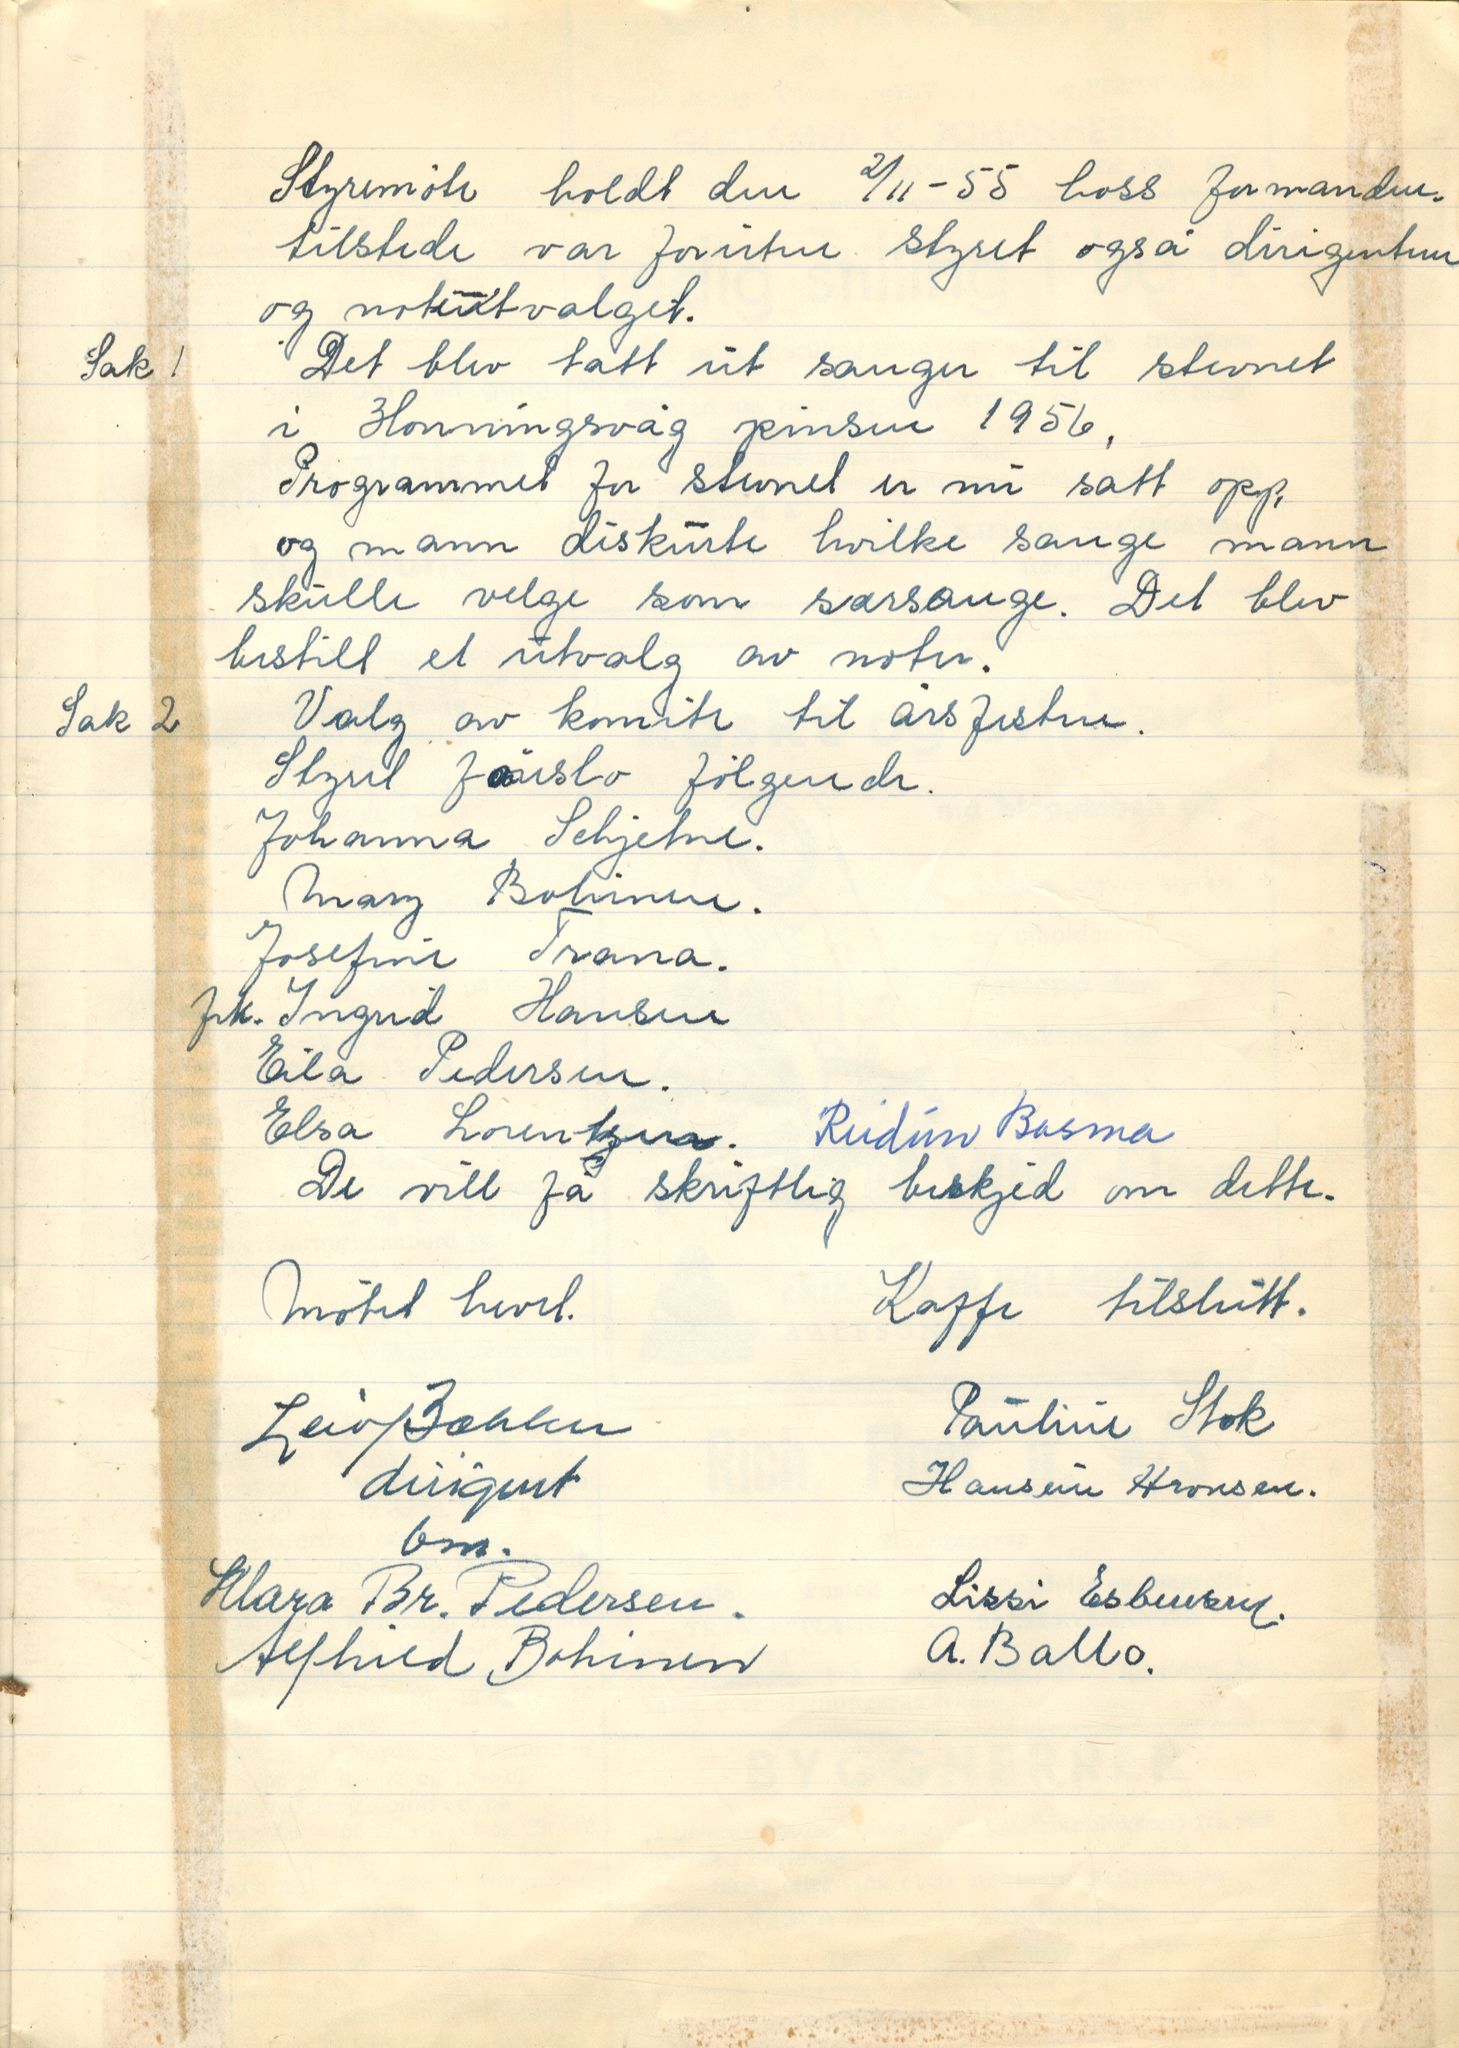 Styremöte holdt den 2/11-55 hoss formanden.
tilstede var foruten styret også dirigenten
og noteutvalget.
Sak 1 Det blev tatt ut sanger til stevnet
i Honningsvåg pinsen 1956.
Programmet for stevnet er nu satt opp,
og mann diskurte hvilke sange mann
skulle velge som særsange. Det blev
bestill et utvalg av noter.
Sak 2 Valg av komite til årsfesten.
Styret föreslo fölgende.
Johanna Schjetne.
Mary Bohinen.
Josefine Trana.
frk. Ingrid Hansen
Eila Pedersen.
Elsa Lorentzen. Reidun Basma
De vill få skriftlig beskjed om dette.
Mötet hevet. Kaffe tilslutt.
Leif
dirigent
Pauline Stok
Hansine Aronsen.
bm.
Klara Br. Pedersen. Lissi Esbensen.
Alfhild Bohinen A. Ballo.